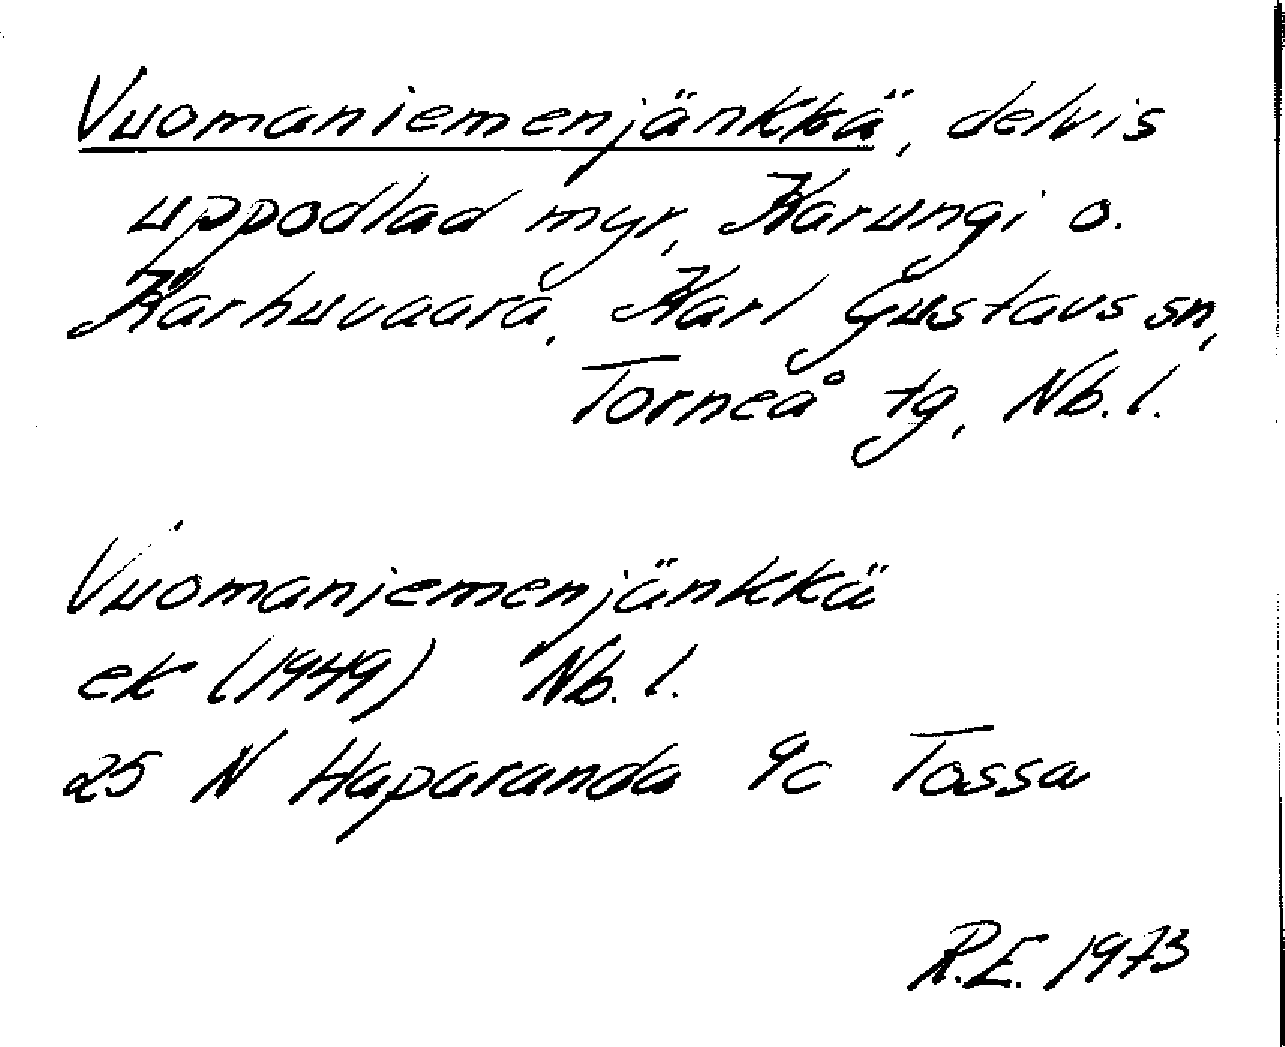 Vuomaniemenjänkkä, delvis
uppodlad myr, Karungi o.
Karhuvaara, Karl Gustavs sn,
Torneå tg, Nb. l.
Vuomaniemenjänkkä
ek (1949) Nb. l.
25 N Haparanda 9c Tossa
R.E. 1973